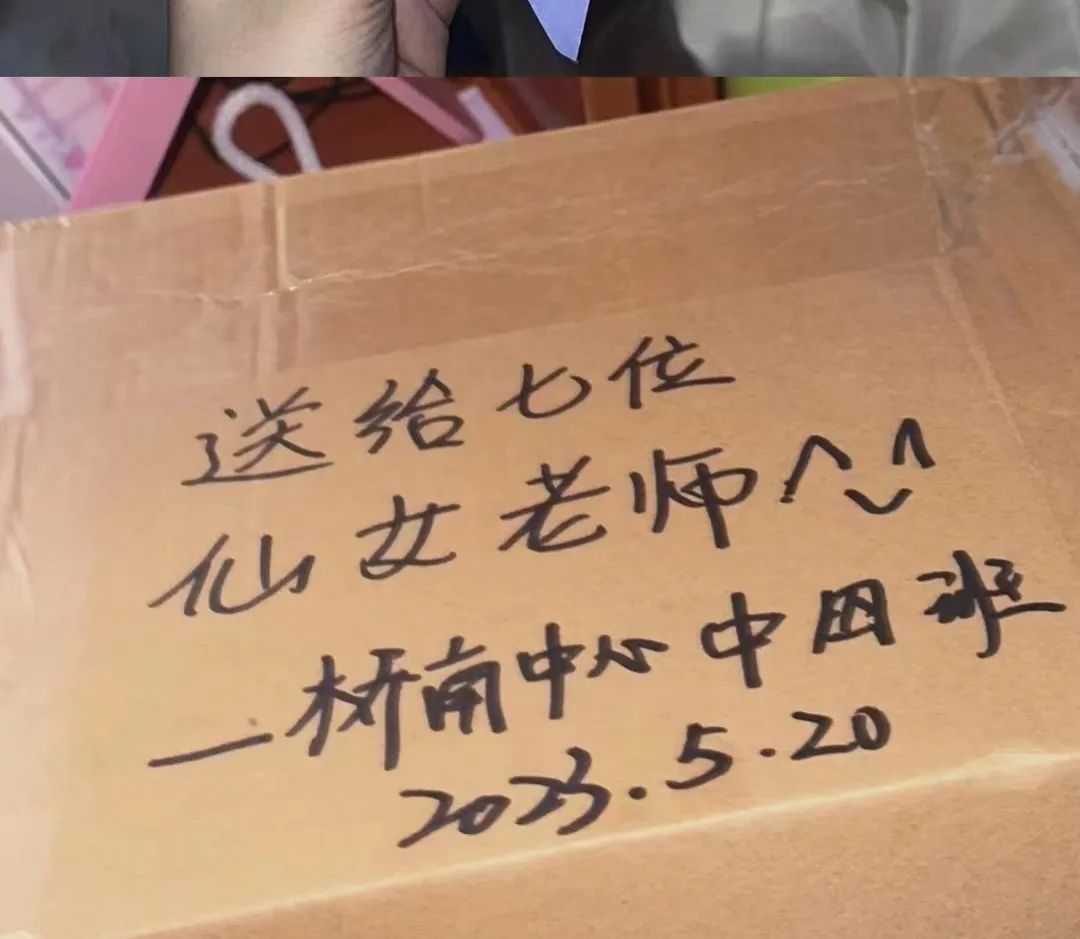 送给七位
仙女老师^‿^
—桥南中心中四班
2023.5.20